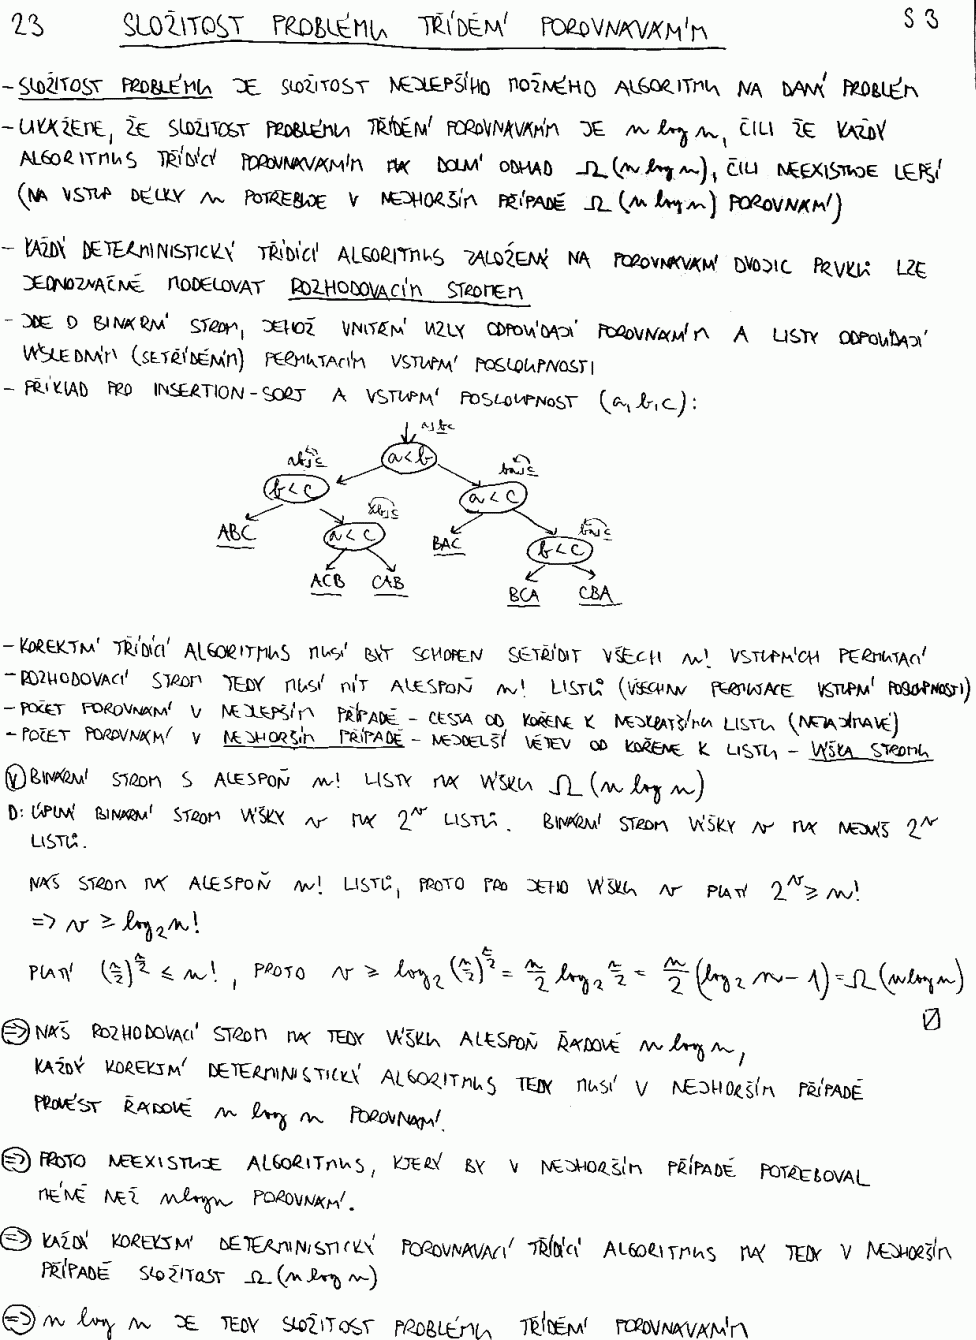 23 SLOŽITOST PROBLÉMU TŘÍDĚNÍ POROVNÁVÁNÍM S3
- SLOŽITOST PROBLÉMU JE SLOŽITOST NEJLEPŠÍHO MOŽNÉHO ALGORITMU NA DANÝ PROBLÉM
- UKÁŽEME, ŽE SLOŽITOST PROBLÉMU TŘÍDĚNÍ POROVNÁVÁNÍM JE n log n, ČILI ŽE KAŽDÝ
ALGORITMUS TŘÍDÍCÍ POROVNÁVÁNÍM MÁ DOLNÍ ODHAD Ω(n log n), ČILI NEEXISTUJE LEPŠÍ
(NA VSTUP DÉLKY n POTŘEBUJE V NEJHORŠÍM PŘÍPADĚ Ω(n log n) POROVNÁNÍ)
- KAŽDÝ DETERMINISTICKÝ TŘÍDÍCÍ ALGORITMUS ZALOŽENÝ NA POROVNÁVÁNÍ DVOJIC PRVKŮ LZE
JEDNOZNAČNĚ MODELOVAT ROZHODOVACÍM STROMEM
- JDE O BINÁRNÍ STROM, JEHOŽ VNITŘNÍ UZLY ODPOVÍDAJÍ POROVNÁNÍM A LISTY ODPOVÍDAJÍ
VÝSLEDNÝM (SETŘÍDĚNÝM) PERMUTACÍM VSTUPNÍ POSLOUPNOSTI
- PŘÍKLAD PRO INSERTION-SORT A VSTUPNÍ POSLOUPNOST (a, b, c):
a|bc
a<b
ab|c
b<c
ba|c
a<c
ABC
ab|c
a<c
BAC
ba|c
b<c
ACB CAB
BCA CBA
- KOREKTNÍ TŘÍDÍCÍ ALGORITMUS MUSÍ BÝT SCHOPEN SETŘÍDIT VŠECH n! VSTUPNÍCH PERMUTACÍ
- ROZHODOVACÍ STROM TEDY MUSÍ MÍT ALESPOŇ n! LISTŮ (VŠECHNY PERMUTACE VSTUPNÍ POSLOUPNOSTI)
- POČET POROVNÁNÍ V NEJLEPŠÍM PŘÍPADĚ - CESTA OD KOŘENE K NEJKRATŠÍMU LISTU (NEZAJÍMAVÉ)
- POČET POROVNÁNÍ V NEJHORŠÍM PŘÍPADĚ - NEJDELŠÍ VĚTEV OD KOŘENE K LISTU - VÝŠKA STROMU
Ⓥ BINÁRNÍ STROM S ALESPOŇ n! LISTY MÁ VÝŠKU Ω(n log n)
D: ÚPLNÝ BINÁRNÍ STROM VÝŠKY v MÁ 2^v LISTŮ. BINÁRNÍ STROM VÝŠKY v MÁ NEJVÝŠ 2^v
LISTŮ.
NÁŠ STROM MÁ ALESPOŇ n! LISTŮ, PROTO PRO JEHO VÝŠKU v PLATÍ 2^v ≥ n!
=> v ≥ log₂ n!
PLATÍ (n/2)^(n/2) ≤ n!, PROTO v ≥ log₂ (n/2)^(n/2) = n/2 log₂ n/2 = n/2 (log₂ n - 1) = Ω(n log n)
=> NÁŠ ROZHODOVACÍ STROM MÁ TEDY VÝŠKU ALESPOŇ ŘÁDOVĚ n log n,
KAŽDÝ KOREKTNÍ DETERMINISTICKÝ ALGORITMUS TEDY MUSÍ V NEJHORŠÍM PŘÍPADĚ
PROVÉST ŘÁDOVĚ n log n POROVNÁNÍ.
=> PROTO NEEXISTUJE ALGORITMUS, KTERÝ BY V NEJHORŠÍM PŘÍPADĚ POTŘEBOVAL
MÉNĚ NEŽ n log n POROVNÁNÍ.
=> KAŽDÝ KOREKTNÍ DETERMINISTICKÝ POROVNÁVACÍ TŘÍDÍCÍ ALGORITMUS MÁ TEDY V NEJHORŠÍM
PŘÍPADĚ SLOŽITOST Ω(n log n)
=> n log n JE TEDY SLOŽITOST PROBLÉMU TŘÍDĚNÍ POROVNÁVÁNÍM